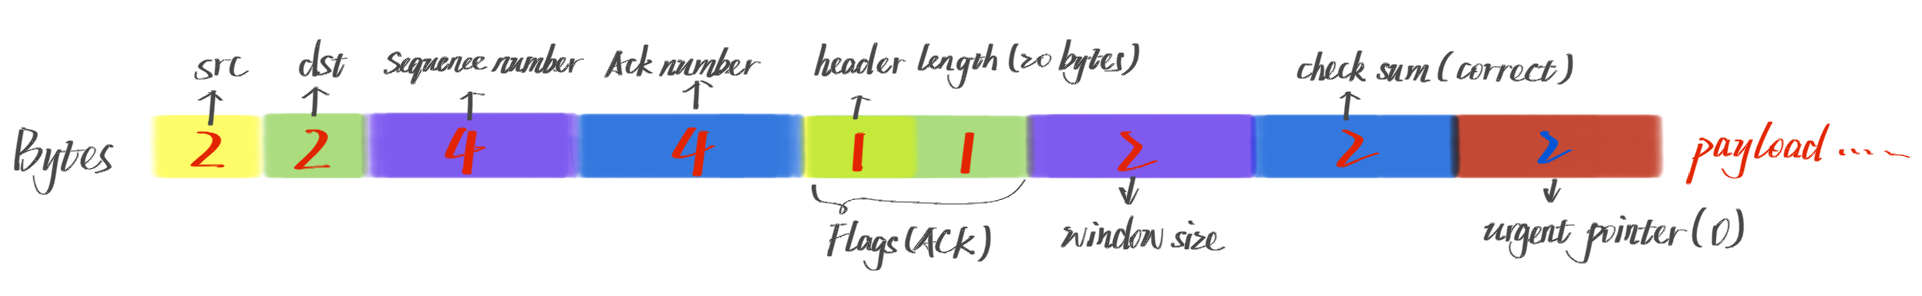 src dst Sequence number Ack number header length (20 bytes) check sum (correct)
Bytes 2 2 4 4 1 1 2 2 2 payload ....
Flags (ACK) window size urgent pointer (0)